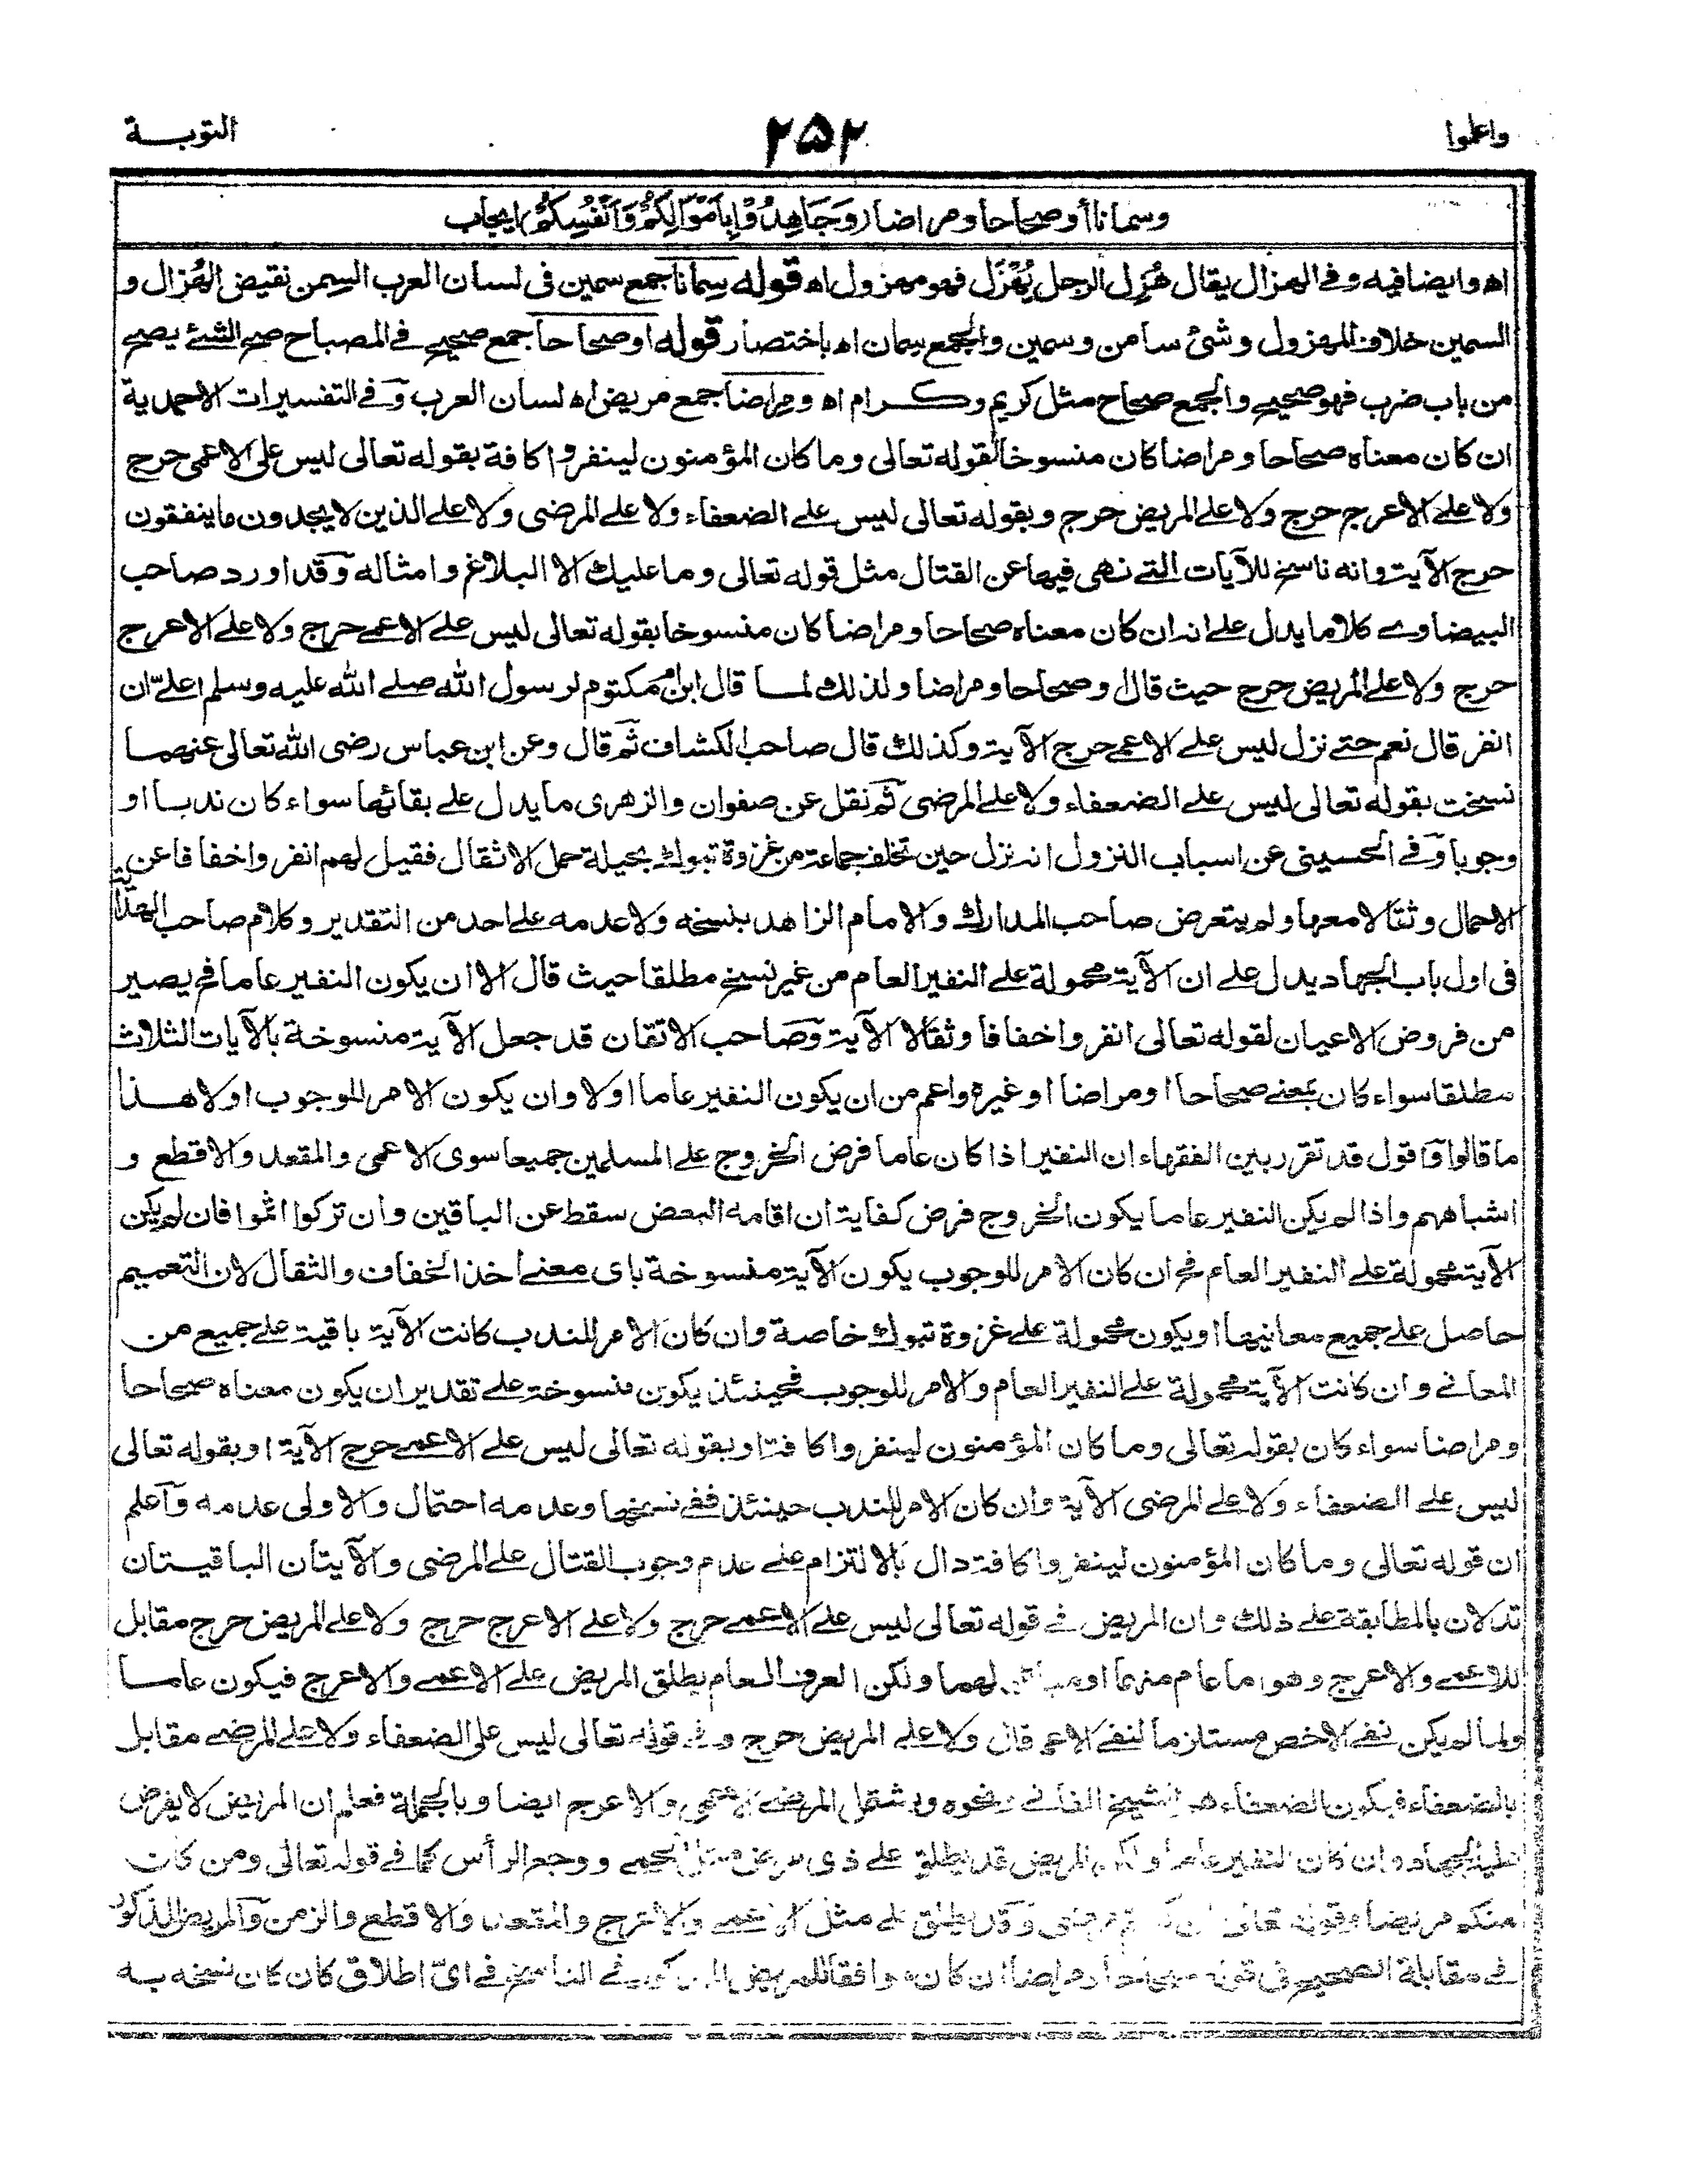 واعلموا
٢٥٢
التوبـــة
وسمانا أو صحاحا ومراضا (وَجَاهِدُوْا بِاَمْوَالِكُمْ وَاَنْفُسِكُمْ) ايجاب
اه وايضا فيه وفى الهزال يقال هُزِل الرجل يُهْزَل فهو مهزول اه قوله سِمانا جمع سمين فى لسان العرب السِمن نقيض الهُزال و
السمين خلاف المهزول وشئ سامن وسمين والجمع سِمان اه باختصار قوله او صحاحا جمع صحيح فى المصباح صح الشئ يصح
من باب ضرب فهو صحيح والجمع صحاح مثل كريم وكـــرام اه ومراضا جمع مريض اه لسان العرب وفى التفسيرات الاحمدية
ان كان معناه صحاحا ومراضا كان منسوخا لقوله تعالى وما كان المؤمنون لينفروا كافة بقوله تعالى ليس على الاعمى حرج
ولا على الاعرج حرج ولا على المريض حرج وبقوله تعالى ليس على الضعفاء ولا على المرضى ولا على الذين لا يجدون ما ينفقون
حرج الآية وانه ناسخ للآيات التى نهى فيها عن القتال مثل قوله تعالى وما عليك الا البلاغ وامثاله وقد اورد صاحب
البيضاوى كلاما يدل على انه ان كان معناه صحاحا ومراضا كان منسوخا بقوله تعالى ليس على الاعمى حرج ولا على الاعرج
حرج ولا على المريض حرج حيث قال او صحاحا ومراضا ولذلك لما قال ابن ام مكتوم لرسول الله صلى الله عليه وسلم اعلىّ ان
انفر قال نعم حتى نزل ليس على الاعمى حرج الآية وكذلك قال صاحب الكشاف ثم قال وعن ابن عباس رضى الله تعالى عنهما
نسخت بقوله تعالى ليس على الضعفاء ولا على المرضى ثم نقل عن صفوان والزهرى ما يدل على بقائها سواء كان ندبا او
وجوبا وفى الحسينى عن اسباب النزول انه نزل حين تخلف جماعة من غزوة تبوك بحيلة حمل الاثقال فقيل لهم انفروا خفافا عن
الاحمال وثقالا معها ولم يتعرض صاحب المدارك والامام الزاهد بنسخه ولا عدمه على احد من التقدير وكلام صاحب الهداية
فى اول باب الجهاد يدل على ان الآية محمولة على النفير العام من غير نسخ مطلقا حيث قال الا ان يكون النفير عاما فح يصير
من فروض الاعيان لقوله تعالى انفروا خفافا وثقالا الآية وصاحب الاتقان قد جعل الآية منسوخة بالآيات الثلاث
مطلقا سواء كان بمعنى صحاحا او مراضا او غيره واعم من ان يكون النفير عاما اولا وان يكون الامر للوجوب اولا هـــذا
ما قالوا واقول قد تقرر بين الفقهاء ان النفير اذا كان عاما فرض الخروج على المسلمين جميعا سوى الاعمى والمقعد والاقطع و
اشباههم واذا لم يكن النفير عاما يكون الخروج فرض كفاية ان اقامه البعض سقط عن الباقين وان تركوا اثموا فان لم يكن
الآية محمولة على النفير العام فح ان كان الامر للوجوب يكون الآية منسوخة باى معنى اخذ الخفاف والثقال لان التعميم
حاصل على جميع معانيها او يكون محمولة على غزوة تبوك خاصة وان كان الامر للندب كانت الآية باقية على جميع من
المعانى وان كانت الآية محمولة على النفير العام والامر للوجوب فحينئذ يكون منسوخة على تقدير ان يكون معناه صحاحا
ومراضا سواء كان بقوله تعالى وما كان المؤمنون لينفروا كافة او بقوله تعالى ليس على الاعمى حرج الآية او بقوله تعالى
ليس على الضعفاء ولا على المرضى الآية وان كان الامر للندب حينئذ ففى نسخها وعدمه احتمال والاولى عدمه واعلم
ان قوله تعالى وما كان المؤمنون لينفروا كافة دال بالالتزام على عدم وجوب القتال على المرضى والآيتان الباقيتان
تدلان بالمطابقة على ذلك وان المريض فى قوله تعالى ليس على الاعمى حرج ولا على الاعرج حرج ولا على المريض حرج مقابل
للاعمى والاعرج وهو اما عام منهما او لهما ولكن العرف العام يطلق المريض على الاعمى والاعرج فيكون عاما
ولما لم يكن نفى الاخص مستلزما لنفى الاعم قال ولا على المريض حرج وفى قوله تعالى ليس على الضعفاء ولا على المرضى مقابل
بالضعفاء فيكون الضعفاء هو الشيخ الفانى ونحوه ويشتمل المرضى الاعمى والاعرج ايضا وبالجملة فعلم ان المريض لا يفرض
عليه الجهاد وان كان النفير عاما ولكن المريض قد يطلق على ذى مرض مثل الحمى ووجع الرأس كما فى قوله تعالى ومن كان
منكم مريضا وقوله تعالى وقد يطلق على مثل الاعمى والاعرج والمقعد والاقطع والزمن والمريض المذكور
فى مقابلة الصحيح فى قوله صحاحا ومراضا ان كان موافقا للمريض المذكور فى الناسخ فى اىّ اطلاق كان كان نسخه به